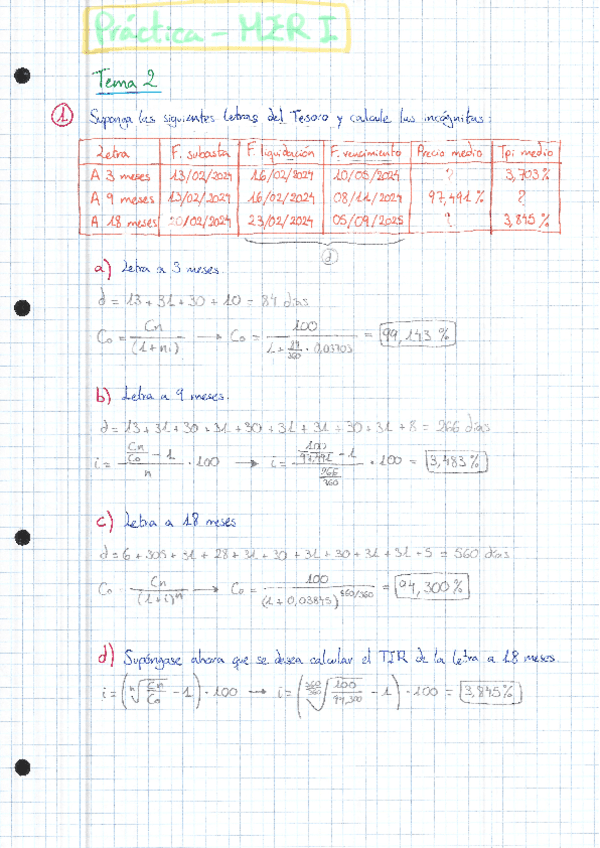 Práctica - MER I
Tema 2
① Suponga las siguientes letras del Tesoro y calcule las incógnitas:
Letra F. subasta F. liquidación F. vencimiento Precio medio Tpi medio
A 3 meses 13/02/2024 16/02/2024 10/05/2024 ? 3,703%
A 9 meses 13/02/2024 16/02/2024 08/11/2024 97,491% ?
A 18 meses 20/02/2024 23/02/2024 05/09/2025 ? 3,845%
d
a) Letra a 3 meses.
d = 13 + 31 + 30 + 10 = 84 días
C₀ = Cn / (1 + ni) → C₀ = 100 / (1 + 84/360 · 0,03703) = 99,143%
b) Letra a 9 meses.
d = 13 + 31 + 30 + 31 + 30 + 31 + 31 + 30 + 31 + 8 = 266 días
i = (Cn/C₀ - 1) / n · 100 → i = (100/97,491 - 1) / (266/360) · 100 = 3,483%
c) Letra a 18 meses
d = 6 + 305 + 31 + 28 + 31 + 30 + 31 + 30 + 31 + 31 + 5 = 560 días
C₀ Cn / (1 + i)ⁿ → C₀ = 100 / (1 + 0,03845)^560/360 = 94,300%
d) Supóngase ahora que se desea calcular el TIR de la letra a 18 meses.
i = (ⁿ√(Cn/C₀) - 1) · 100 → i = (560/360√(100/94,300) - 1) · 100 = 3,845%